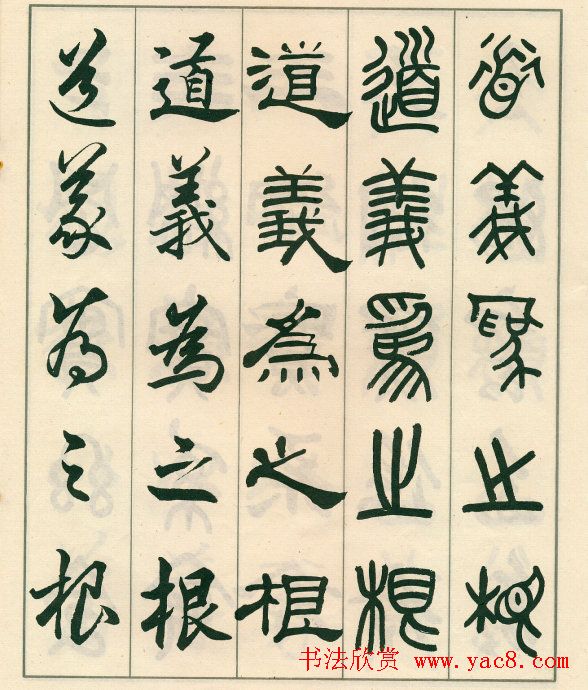 道義為之根
道義為之根
道義為之根
道義為之根
道義為之根
书法欣赏 www.yac8.com